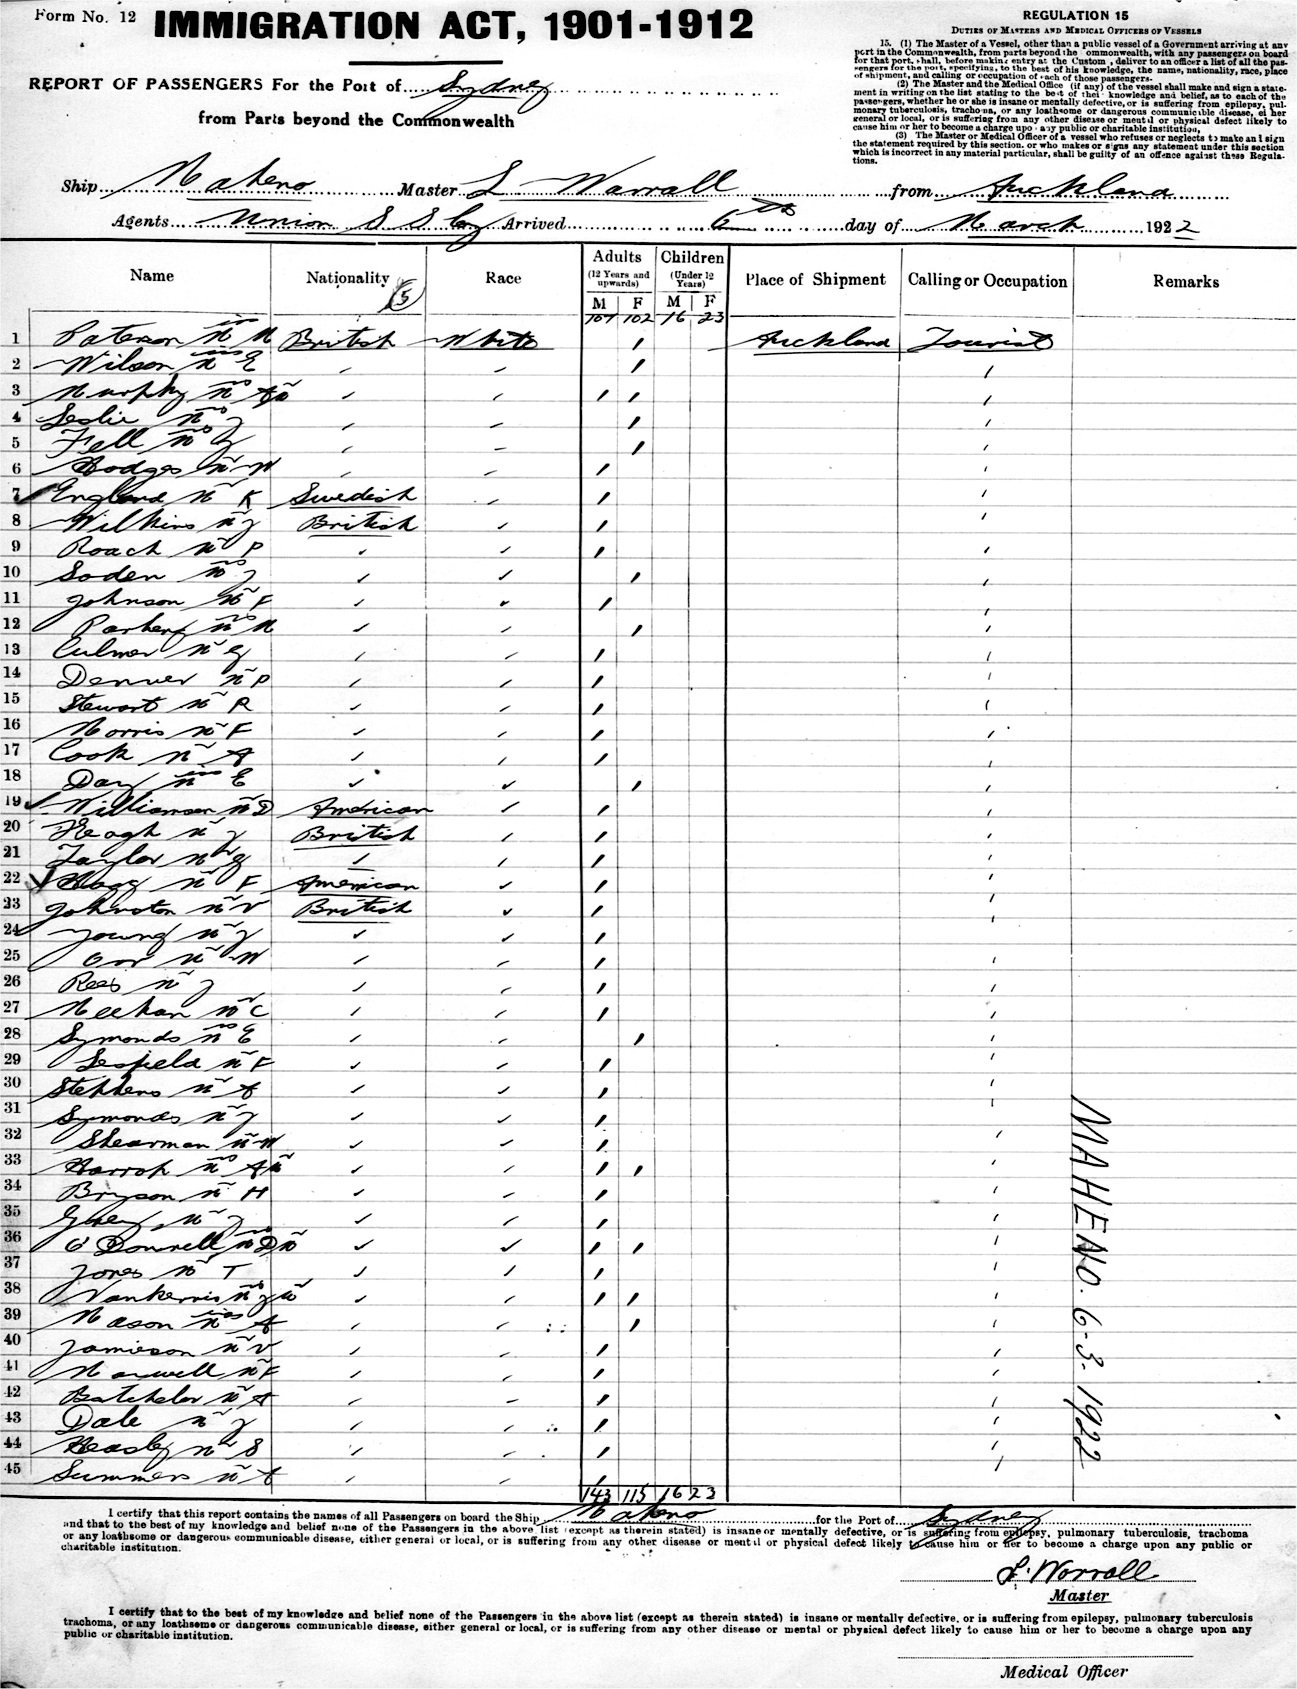 Form No. 12
IMMIGRATION ACT, 1901-1912
REPORT OF PASSENGERS For the Port of Sydney
from Parts beyond the Commonwealth
REGULATION 15
DUTIES OF MASTERS AND MEDICAL OFFICERS OF VESSELS
15. (1) The Master of a Vessel, other than a public vessel of a Government arriving at any
port in the Commonwealth, from parts beyond the ommonwealth, with any passengers on board
for that port, shall, before making entry at the Custom , deliver to an officer a list of all the pas-
sengers for the port, specifying, to the best of his knowledge, the name, nationality, race, place
of shipment, and calling or occupation of each of those passengers.
(2) The Master and the Medical Office (if any) of the vessel shall make and sign a state-
ment in writing on the list stating to the best of thei knowledge and belief, as to each of the
passengers, whether he or she is insane or mentally defective, or is suffering from epilepsy, pul-
monary tuberculosis, trachoma, or any loathsome or dangerous communicable disease, ei her
general or local, or is suffering from any other disease or mental or physical defect likely to
cause him or her to become a charge upo any public or charitable institution,
(3) The Master or Medical Officer of a vessel who refuses or neglects to make and sign
the statement required by this section. or who makes or signs any statement under this section
which is incorrect in any material particular, shall be guilty of an offence against these Regula-
tions.
Ship Maheno Master L Worrall from Auckland
Agents Union S S Coy Arrived 6th day of March 1922
Name Nationality Race Adults Children Place of Shipment Calling or Occupation Remarks
(12 Years and upwards) (Under 12 Years)
(5) M F M F
107 102 16 23
1 Paterson Mrs M British White Auckland Tourist
2 Wilson Miss E
3 Murphy Mr A
4 Leslie Mrs J
5 Fell Mrs J
6 Hodges Mr W
7 England Mr K Swedish
8 Wilkins Mr J British
9 Roach Mr P
10 Soden Mrs J
11 Johnson Mr F
12 Mrs M
13 Culmer Mr G
14 Denver Mr P
15 Stewart Mr R
16 Morris Mr F
17 Cook Mr A
18 Day Miss E
19 Williamson Mr D American
20 Keogh Mr J British
21 Taylor Mr G
22 Hogg Mr F American
23 Johnston Mr V British
24 Young Mr J
25 Orr Mr W
26 Rees Mr J
27 Meehan Mr C
28 Symonds Mrs E
29 Mr F
30 Stephens Mr A
31 Symonds Mr J
32 Shearman Mr W
33 Mr A
34 Bryson Mr H
35 Mr J
36 O'Donnell Mr D
37 Jones Mr T
38
39 Mason Miss A
40 Jamieson Mr V
41 Maxwell Mr F
42 Batchelor Mr A
43 Dale Mr J
44 Heasley Mr S
45 Summers Mr A
143 115 16 23
MAHENO. 6-3-1922
I certify that this report contains the names of all Passengers on board the Ship Maheno for the Port of Sydney
and that to the best of my knowledge and belief none of the Passengers in the above list (except as therein stated) is insane or mentally defective, or is suffering from epilepsy, pulmonary tuberculosis, trachoma
or any loathsome or dangerous communicable disease, either general or local, or is suffering from any other disease or mental or physical defect likely to cause him or her to become a charge upon any public or
charitable institution.
L. Worrall
Master
I certify that to the best of my knowledge and belief none of the Passengers in the above list (except as therein stated) is insane or mentally defective, or is suffering from epilepsy, pulmonary tuberculosis
trachoma, or any loathsome or dangerous communicable disease, either general or local, or is suffering from any other disease or mental or physical defect likely to cause him or her to become a charge upon any
public or charitable institution.
Medical Officer